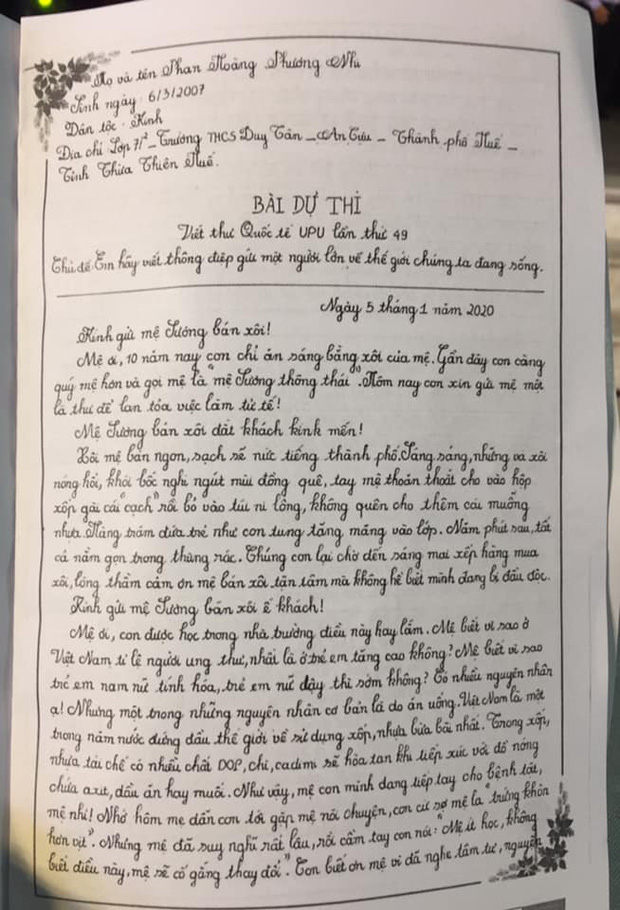 Họ và tên Phan Hoàng Phương Nhi
Sinh ngày: 6/3/2007
Dân tộc: Kinh
Địa chỉ Lớp 7/2 - Trường THCS Duy Tân - An Cựu - Thành phố Huế -
Tỉnh Thừa Thiên Huế.
BÀI DỰ THI
Viết thư Quốc tế UPU lần thứ 49
Chủ đề: Em hãy viết thông điệp gửi một người lớn về thế giới chúng ta đang sống.
Ngày 5 tháng 1 năm 2020
Kính gửi mệ Sương bán xôi!
Mệ ơi, 10 năm nay con chỉ ăn sáng bằng xôi của mệ. Gần đây con càng
quý mệ hơn và gọi mệ là "mệ Sương thông thái". Hôm nay con xin gửi mệ một
lá thư để lan tỏa việc làm tử tế!
Mệ Sương bán xôi đắt khách kính mến!
Xôi mệ bán ngon, sạch sẽ nức tiếng thành phố. Sáng sáng, những vá xôi
nóng hổi, khói bốc nghi ngút mùi đồng quê, tay mệ thoăn thoắt cho vào hộp
xốp gài cái "cạch" rồi bỏ vào túi ni lông, không quên cho thêm cái muỗng
nhựa. Hàng trăm đứa trẻ như con tung tăng mang vào lớp. Năm phút sau, tất
cả nằm gọn trong thùng rác. Chúng con lại chờ đến sáng mai xếp hàng mua
xôi, lòng thầm cảm ơn mệ bán xôi tận tâm mà không hề biết mình đang bị đầu độc.
Kính gửi mệ Sương bán xôi ế khách!
Mệ ơi, con được học trong nhà trường điều này hay lắm. Mệ biết vì sao ở
Việt Nam tỉ lệ người ung thư, nhất là ở trẻ em tăng cao không? Mệ biết vì sao
trẻ em nam nữ tính hóa, trẻ em nữ dậy thì sớm không? Có nhiều nguyên nhân
ạ! Nhưng một trong những nguyên nhân cơ bản là do ăn uống. Việt Nam là một
trong năm nước đứng đầu thế giới về sử dụng xốp, nhựa bừa bãi nhất. Trong xốp,
nhựa tái chế có nhiều chất DOP, chì, cadimi sẽ hòa tan khi tiếp xúc với đồ nóng
chứa axit, dầu ăn hay muối. Như vậy, mệ con mình đang tiếp tay cho bệnh tật,
mệ nhỉ! Nhớ hôm mẹ dẫn con tới gặp mệ nói chuyện, con cứ sợ mệ la "trứng khôn
hơn vịt". Nhưng mệ đã suy nghĩ rất lâu, rồi cầm tay con nói: "Mệ ít học, không
biết điều này, mệ sẽ cố gắng thay đổi". Con biết ơn mệ vì đã nghe tâm tư, nguyện